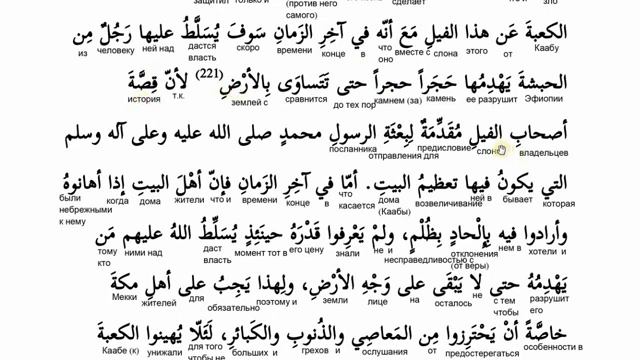 защитил только и (против него самого) сделает
الكعبةَ عَن هذا الفيلِ مَعَ أنّه في آخِرِ الزَمانِ سَوفَ يُسَلَّطُ عليها رَجُلٌ مِن
из человеку ней над дастся власть скоро времени конце в что оно вместе с слона этого от Каабу
الحبشةَ يَهْدِمُها حَجَراً حجراً حتى تَتَساوَى بِالأرْضِ (221) لأنّ قِصَّةَ
история т.к. землей с сравнится до тех пор камнем (за) камень ее разрушит Эфиопии
أصحابِ الفيلِ مُقَدِّمَةٌ لِبِعْثَةِ الرسولِ محمدٍ صلى الله عليه وعلى آله وسلم
посланника отправления для предисловие слона владельцев
التي يكونُ فيها تعظيمُ البيتِ. أمّا في آخِرِ الزَمانِ فإنّ أهْلَ البيتِ إذا أهانوهُ
были небрежными к нему когда дома жители что и времени конце в что касается дома (Каабы) возвеличивание ней в бывает которая
وأرادوا فيه بِإلْحادٍ بِظُلْمٍ، ولمْ يَعْرِفوا قَدْرَهُ حينَئِذٍ يُسَلِّطُ اللهُ عليهم مَن
тому кто ними над даст власть момент тот в его цену знали не и несправедливостью с отклонения (от веры) нем в хотели и
يَهْدِمُهُ حتى لا يَبْقَى على وَجْهِ الأرْضِ، ولِهذا يَجِبُ على أهلِ مكةَ
Мекки жителей для обязательно поэтому и земли лице на осталось не с тем чтобы разрушит его
خاصَّةً أنْ يَحْتَرِزوا مِن المَعاصِي والذُنوبِ والكَبائرِ، لَئَلّا يُهينوا الكعبةَ
Каабе (к) унижали для того чтобы не больших и грехов и ослушания от предостерегатся особенности в